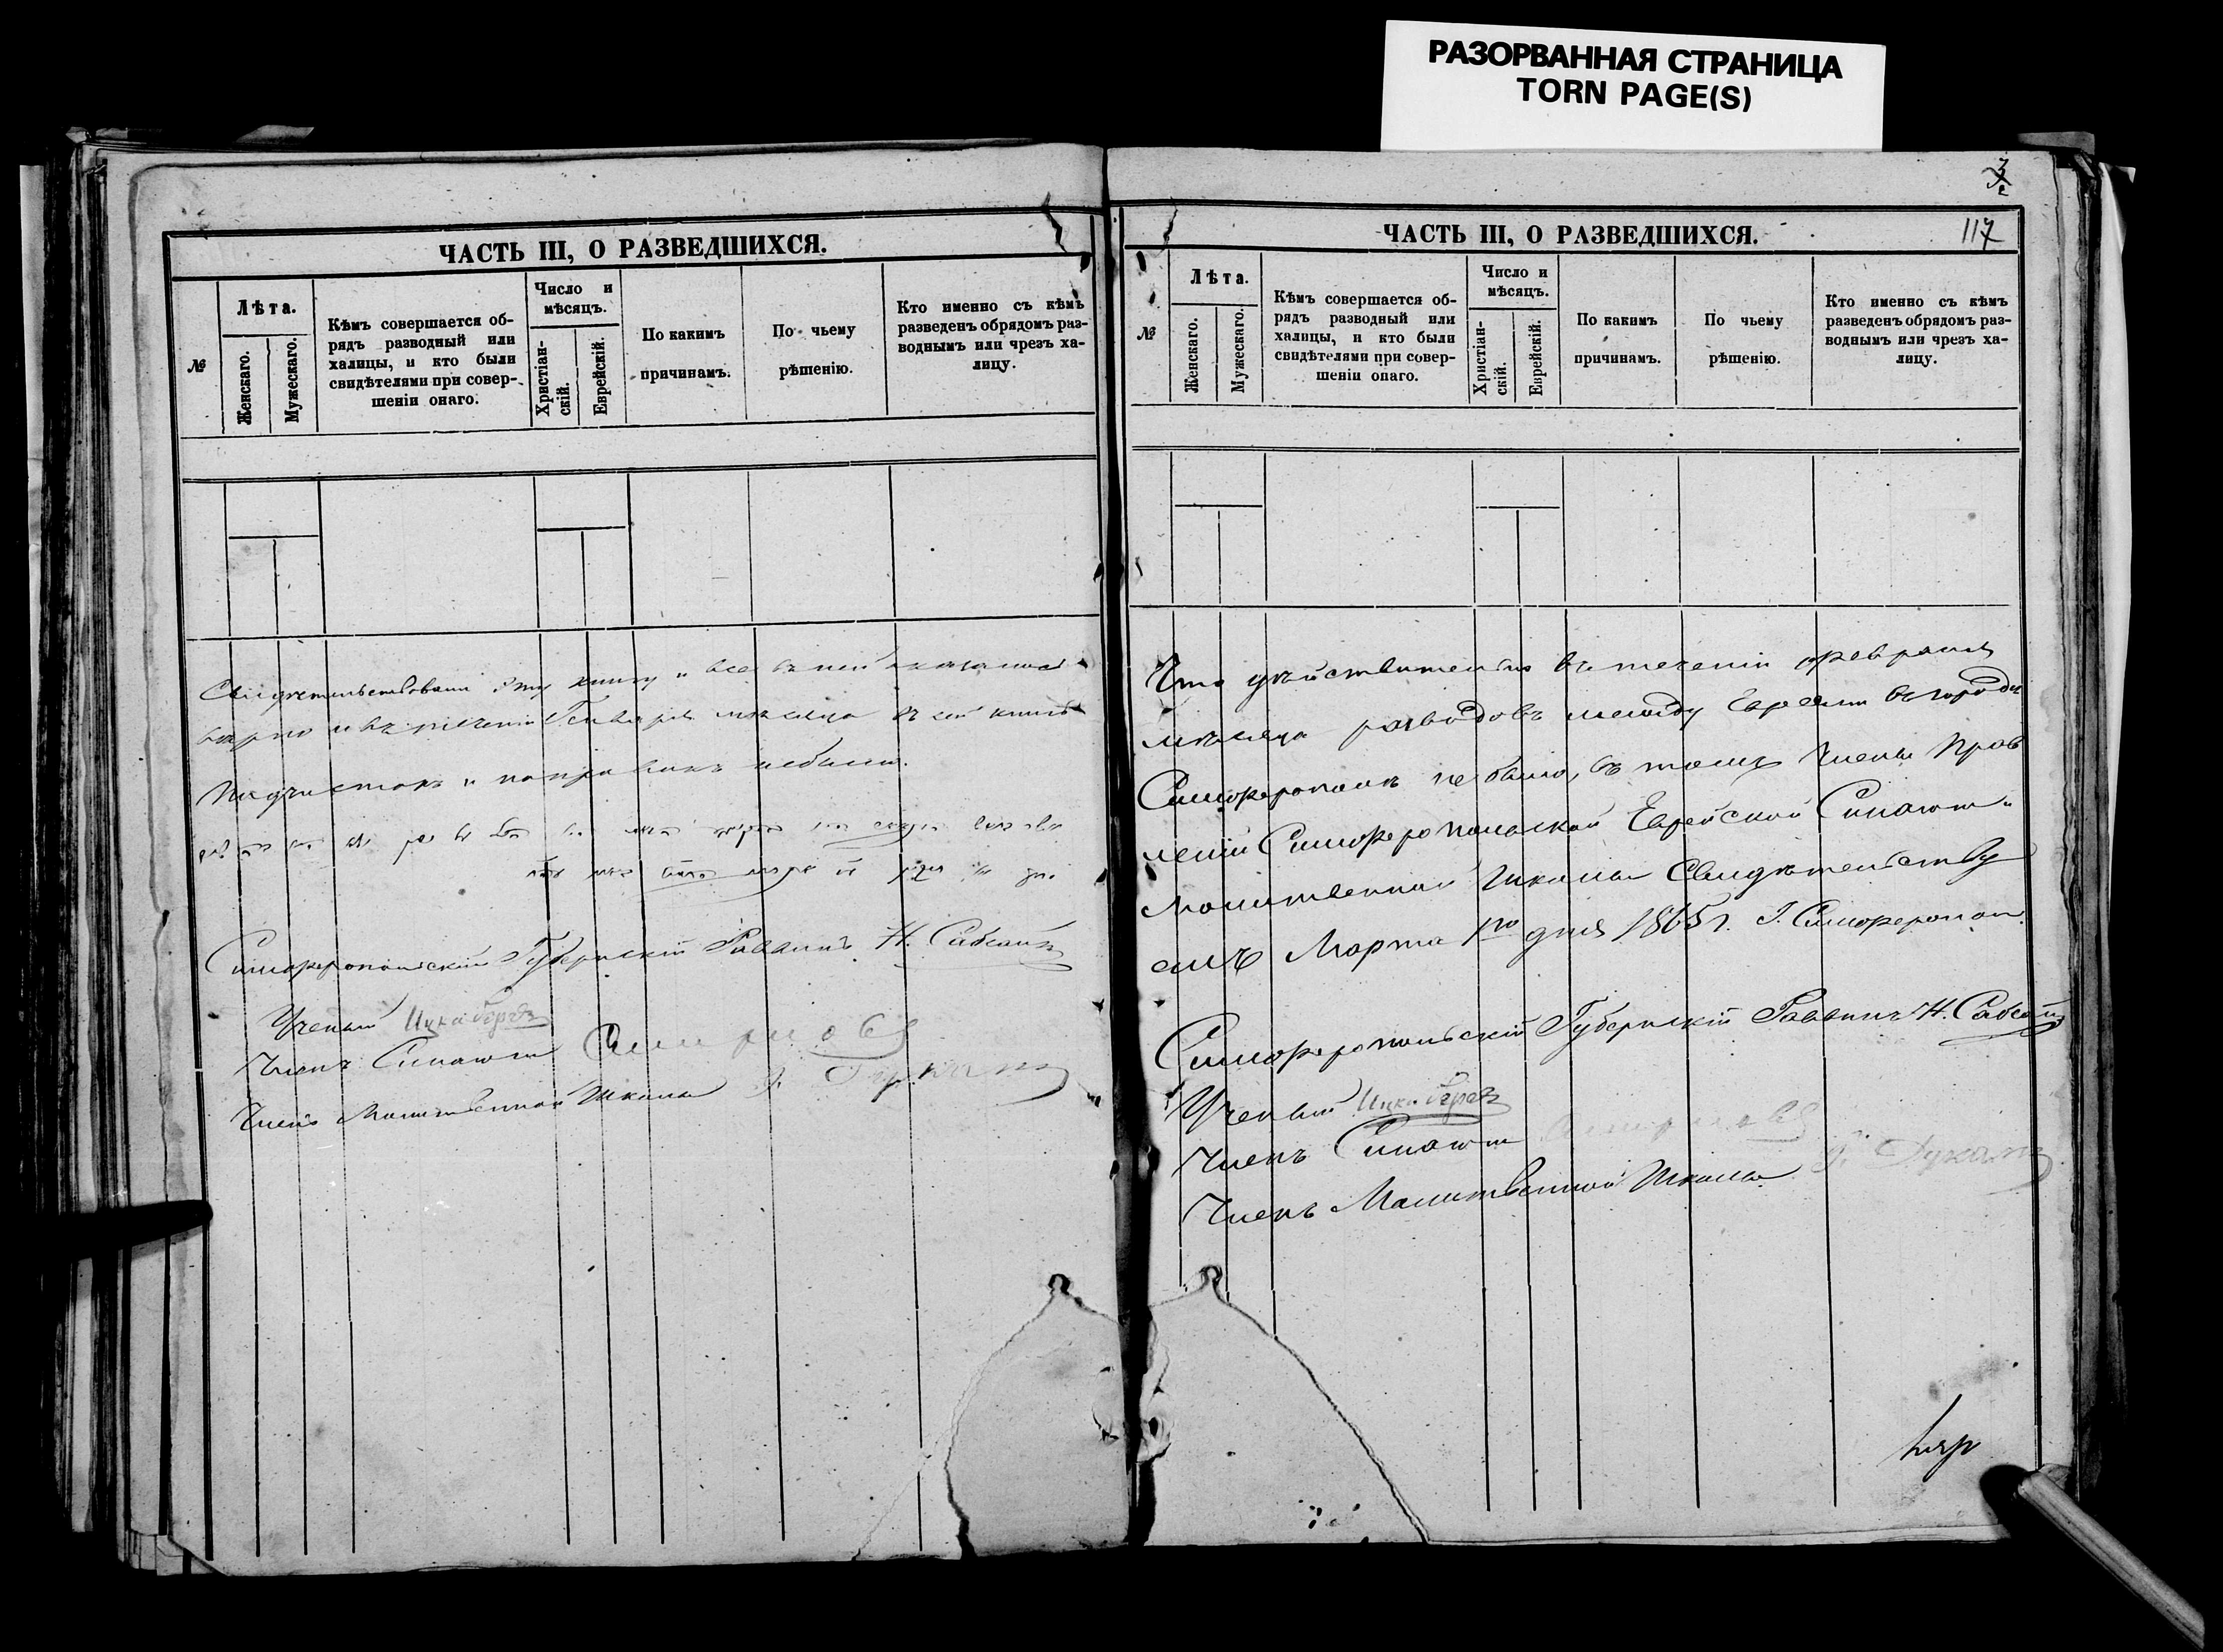 РАЗОРВАННАЯ СТРАНИЦА
TORN PAGE(S)
ЧАСТЬ III, О РАЗВЕДШИХСЯ.
№
Лѣта.
Женскаго.
Мужескаго.
Кѣмъ совершается об-
рядъ разводный или
халицы, и кто были
свидѣтелями при совер-
шеніи онаго.
Число и
мѣсяцъ.
Христіан-
скій.
Еврейскій.
По какимъ
причинамъ.
По чьему
рѣшенію.
Кто именно съ кѣмъ
разведенъ обрядомъ раз-
воднымъ или чрезъ ха-
лицу.
Свидѣтельствовали эту книгу и все въ ней
вѣрно и въ теченіи Генваря мѣсяца въ сей книгѣ
подчистокъ и поправокъ небыло.
Симферопольскій Губернскій Раввинъ Н.
Ученый
Членъ Синагоги
Членъ Молитвенной Школы
3
117
ЧАСТЬ III, О РАЗВЕДШИХСЯ.
№
Лѣта.
Женскаго.
Мужескаго.
Кѣмъ совершается об-
рядъ разводный или
халицы, и кто были
свидѣтелями при совер-
шеніи онаго.
Число и
мѣсяцъ.
Христіан-
скій.
Еврейскій.
По какимъ
причинамъ.
По чьему
рѣшенію.
Кто именно съ кѣмъ
разведенъ обрядомъ раз-
воднымъ или чрезъ ха-
лицу.
Что дѣйствительно въ теченіи февраля
мѣсяца разводовъ между Евреями въ городѣ
Симферополѣ не было, въ томъ Члены Прав
леніи Симферопольской Еврейской Синагоги
молитвенной школы Свидѣтельству
емъ Марта 1го дня 1865 г. Г. Симферополь
Симферопольскій Губернскій Раввинъ Н.
Ученый
Членъ Синагоги
Членъ Молитвенной Школы